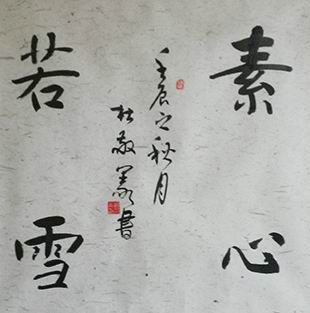 素心
若雪
壬辰之秋月
杜敬义書